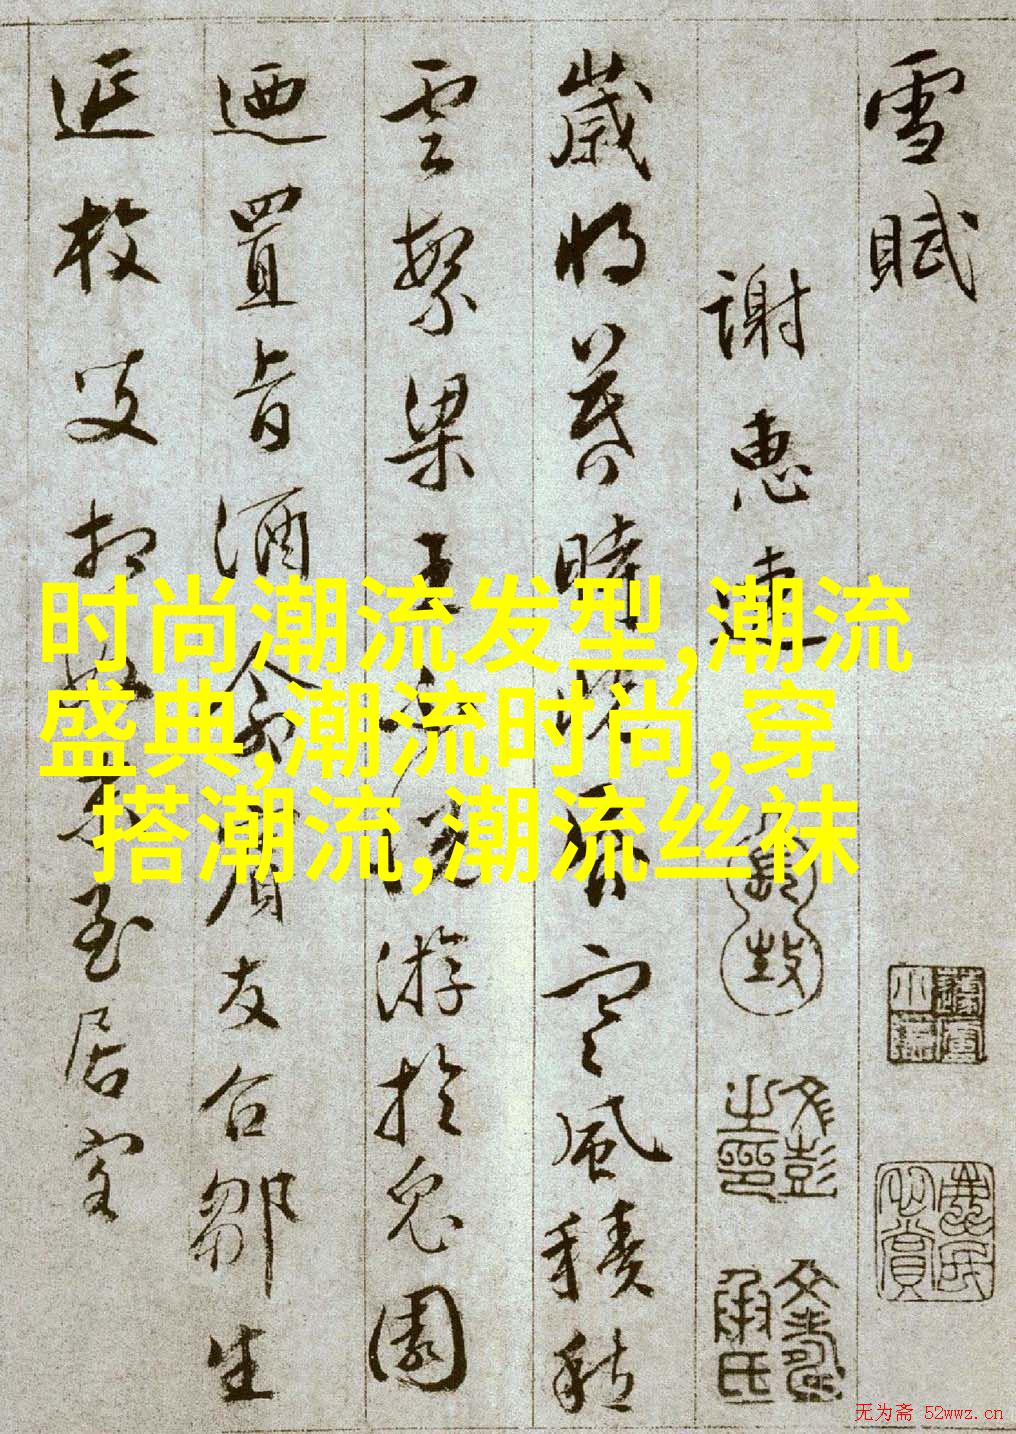 雪賦
謝惠連
歲將暮時既昏寒風積愁
雲繁梁王不悅游於兔園
迺置旨酒命賓友召鄒生
延枚叟相如末至居客
时尚潮流发型,潮流
盛典,潮流时尚,穿
搭潮流,潮流丝袜
文彭之印
文壽承氏
无为斋 52wwz.cn